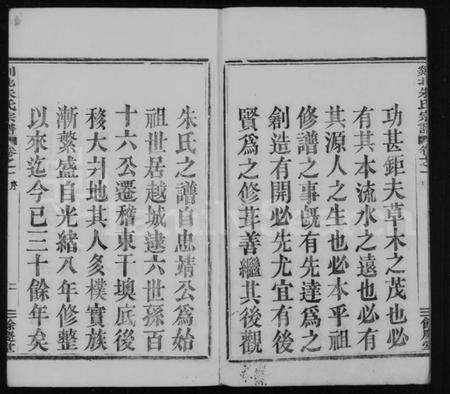 功甚鉅夫草木之茂也必
有其本流水之遠也必有
其源人之生也必本乎祖
修譜之事旣有先達爲之
創造有開必先尤宜有後
賢爲之修葺善繼其後觀
朱氏之譜自忠靖公爲始
祖世居越城逮六世孫百
十六公遷稽東干墺底後
移大廾地其人多樸實族
漸繁盛自光緒八年修整
以來迄今已三十餘年矣
朱氏宗譜